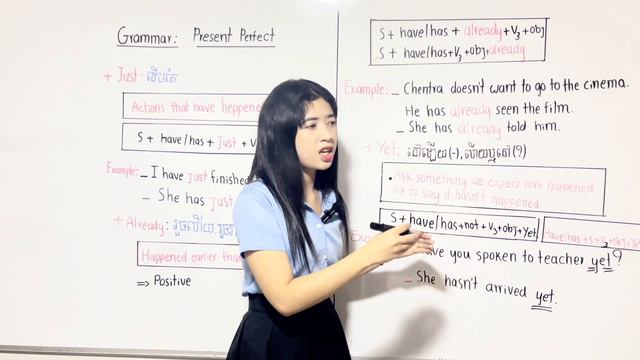 Grammar: Present Perfect
+ Just: ទើបតែ
Actions that have heppene
S + have/has + Just + V
Example: _ I have just finished
_ She has just
+ Already: រួចហើយ,
Happened earlier tha
⇒ Positive
S + have/has + already + V3 + obj
S + have/has + V3 + obj + already
Example: _ Chentra doesn't want to go to the cinema.
He has already seen the film.
_ She has already told him.
+ Yet: នៅឡើយ (-), ហើយឬនៅ (?)
• Ask something we expect has happened
or to say it hasn't happened.
S + have/has + not + V3 + obj + Yet
Have/has + S + V3 + obj + Yet?
Exam
ve you spoken to teacher yet?
_ She hasn't arrived yet.